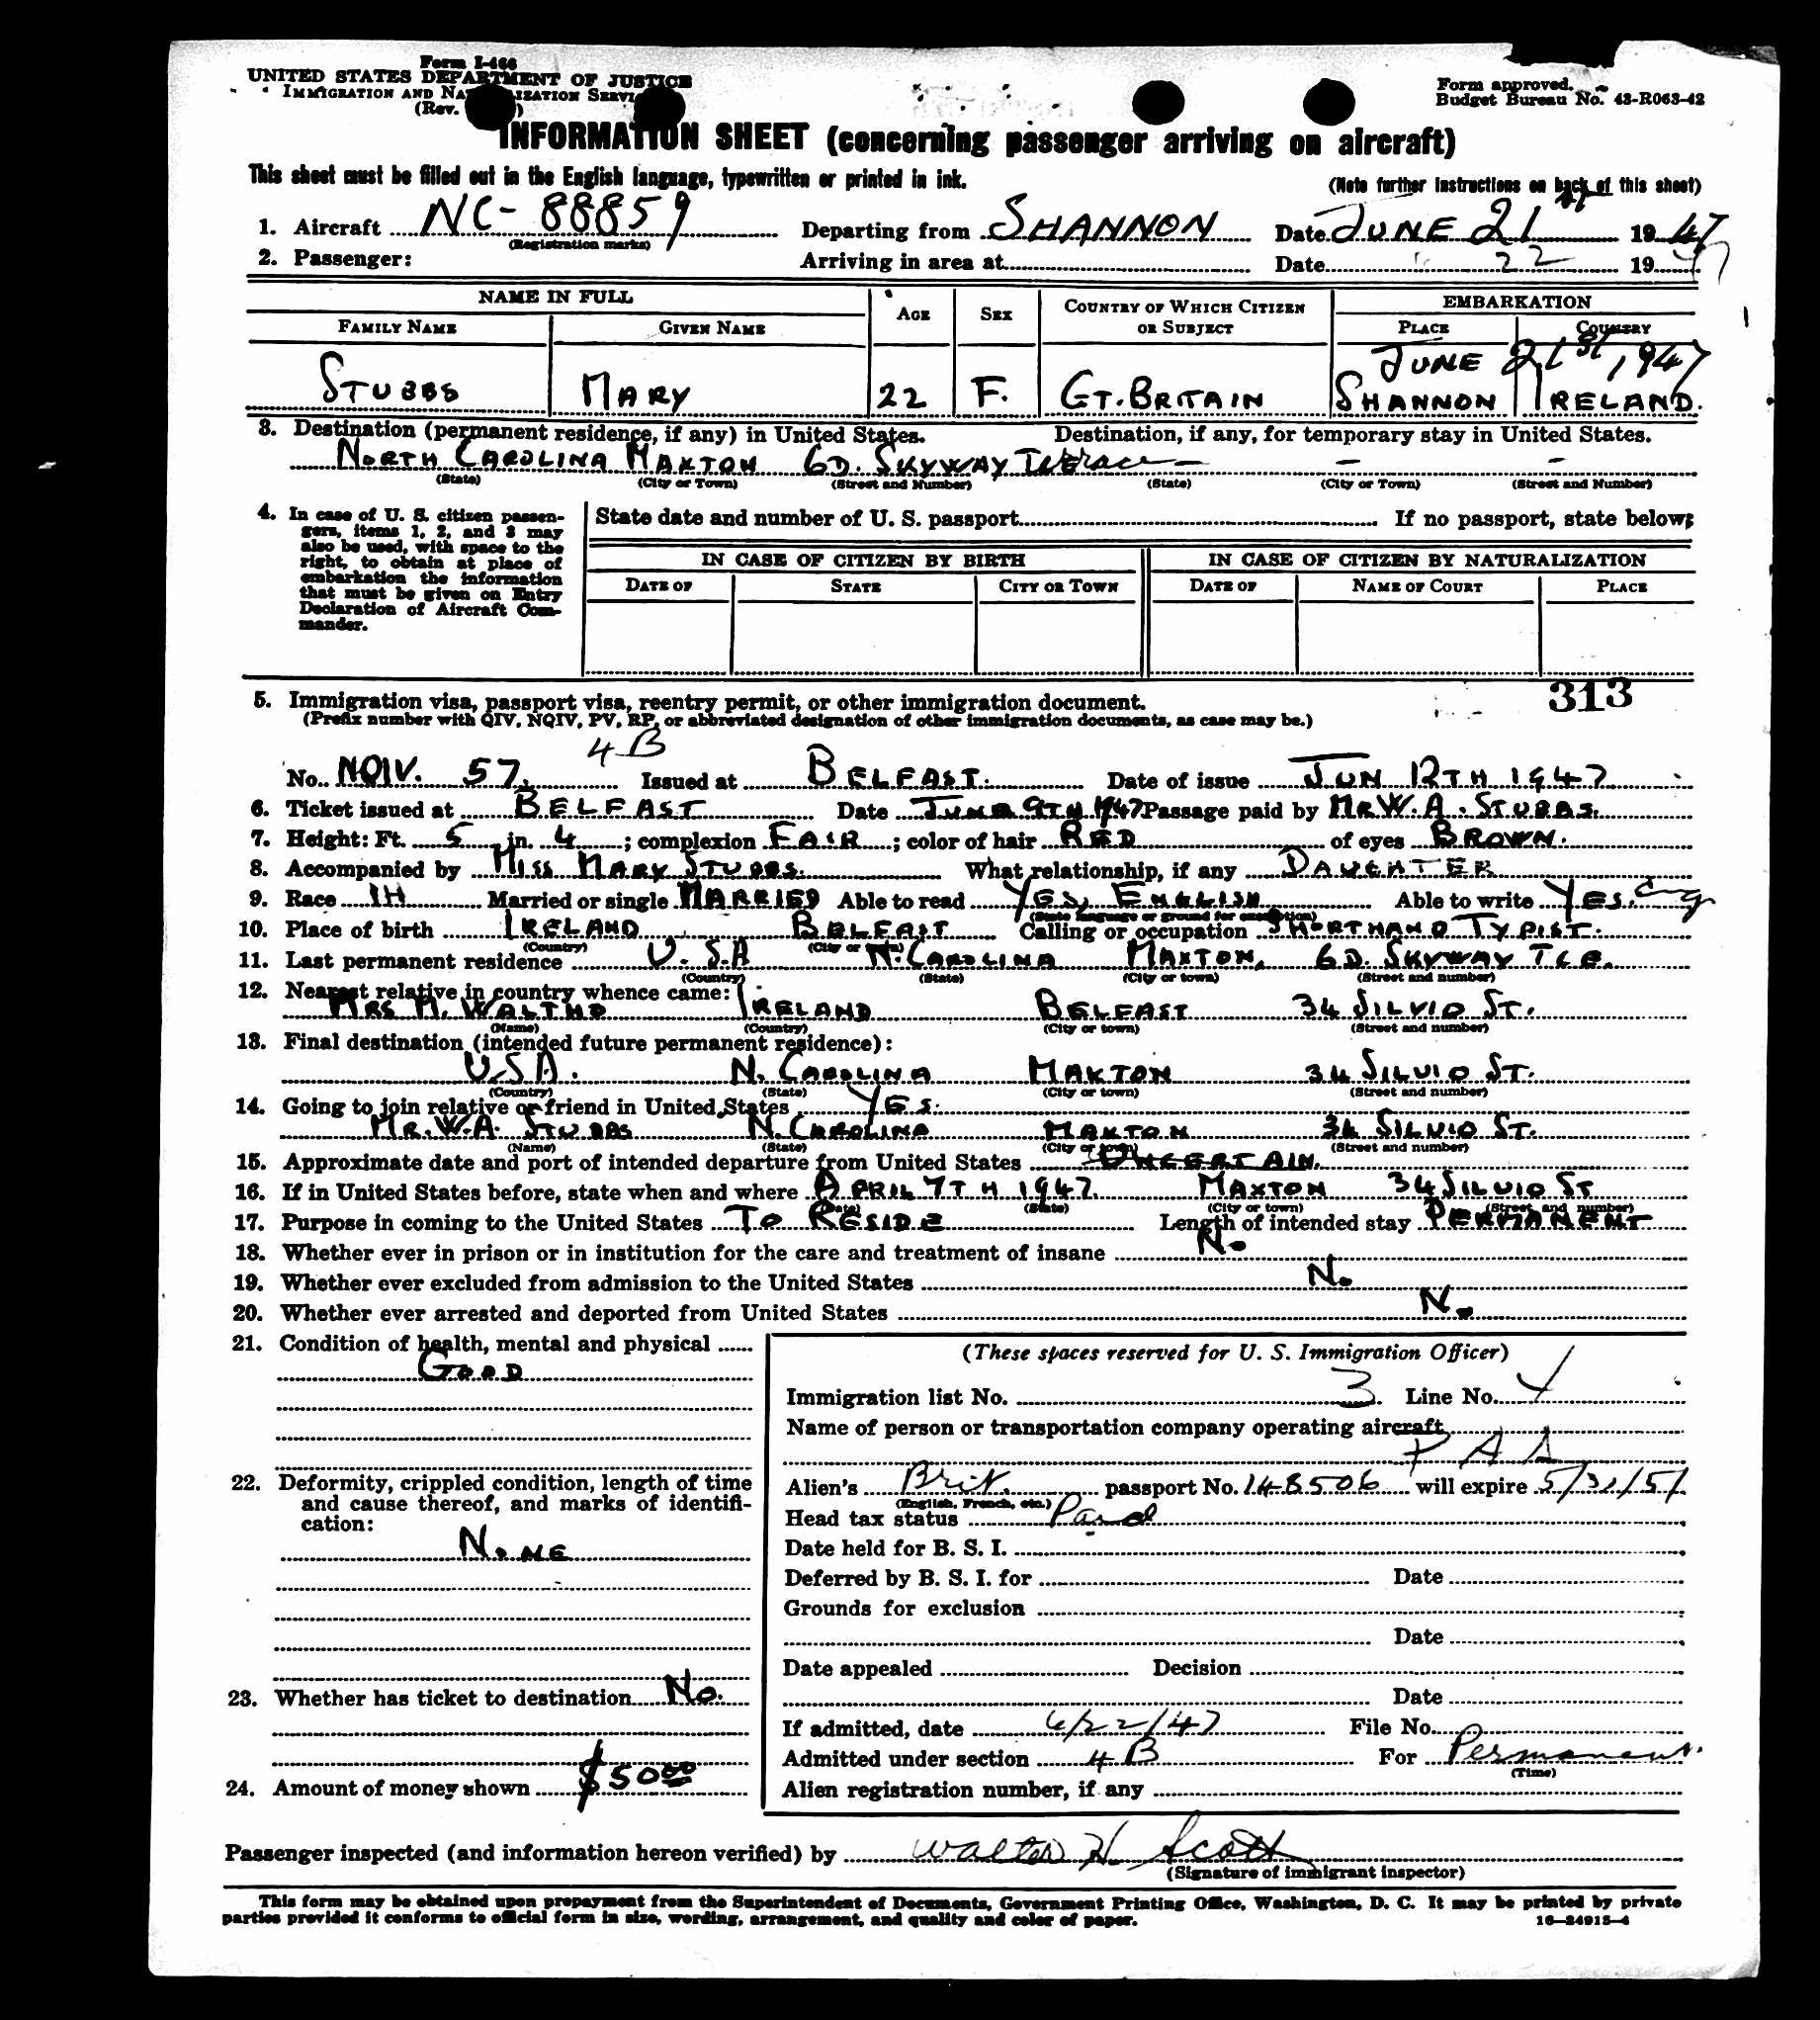 Form I-466
UNITED STATES DEPARTMENT OF JUSTICE
IMMIGRATION AND NATURALIZATION SERVICE
(Rev. )
Form approved.
Budget Bureau No. 43-R063-42
INFORMATION SHEET (concerning passenger arriving on aircraft)
This sheet must be filled out in the English language, typewritten or printed in ink.
(Note further instructions on back of this sheet)
1. Aircraft NC-88859 Departing from SHANNON Date JUNE 21st 1947
(Registration marks)
2. Passenger: Arriving in area at Date " 22 1947
NAME IN FULL AGE SEX COUNTRY OF WHICH CITIZEN OR SUBJECT EMBARKATION
FAMILY NAME GIVEN NAME PLACE COUNTRY
JUNE 21st, 1947
STUBBS MARY 22 F. GT. BRITAIN SHANNON IRELAND.
3. Destination (permanent residence, if any) in United States. Destination, if any, for temporary stay in United States.
NORTH CAROLINA MAXTON 6D. SKYWAY Terrace – – –
(State) (City or Town) (Street and Number) (State) (City or Town) (Street and Number)
4. In case of U. S. citizen passengers, items 1, 2, and 3 may also be used, with space to the right, to obtain at place of embarkation the information that must be given on Entry Declaration of Aircraft Commander.
State date and number of U. S. passport If no passport, state below:
IN CASE OF CITIZEN BY BIRTH IN CASE OF CITIZEN BY NATURALIZATION
DATE OF STATE CITY OR TOWN DATE OF NAME OF COURT PLACE
313
5. Immigration visa, passport visa, reentry permit, or other immigration document.
(Prefix number with QIV, NQIV, PV, RP, or abbreviated designation of other immigration documents, as case may be.)
4B
No. NQIV. 57. Issued at BELFAST. Date of issue JUN 12TH 1947
6. Ticket issued at BELFAST Date JUNE 9TH 1947 Passage paid by MR W. A. STUBBS.
7. Height: Ft. 5 in. 4; complexion FAIR; color of hair RED of eyes BROWN.
8. Accompanied by MISS MARY STUBBS. What relationship, if any DAUGHTER
9. Race IH Married or single MARRIED Able to read YES, ENGLISH Able to write YES. Eng
(State language or ground for exemption)
10. Place of birth IRELAND BELFAST Calling or occupation SHORTHAND TYPIST.
(Country) (City or town)
11. Last permanent residence U.S.A N. CAROLINA MAXTON, 6D. SKYWAY TCE.
(Country) (State) (City or town) (Street and number)
12. Nearest relative in country whence came:
MRS M. WALTHO IRELAND BELFAST 34 SILVIO ST.
(Name) (Country) (City or town) (Street and number)
13. Final destination (intended future permanent residence):
U.S.A. N. CAROLINA MAXTON 34 SILVIO ST.
(Country) (State) (City or town) (Street and number)
14. Going to join relative or friend in United States YES.
MR. W.A. STUBBS N. CAROLINA MAXTON 34 SILVIO ST.
(Name) (State) (City or town) (Street and number)
15. Approximate date and port of intended departure from United States UNCERTAIN.
16. If in United States before, state when and where APRIL 7TH 1947. MAXTON 34 SILVIO ST
(Date) (State) (City or town) (Street and number)
17. Purpose in coming to the United States TO RESIDE Length of intended stay PERMANENT
18. Whether ever in prison or in institution for the care and treatment of insane No
19. Whether ever excluded from admission to the United States No
20. Whether ever arrested and deported from United States No
21. Condition of health, mental and physical
GOOD
22. Deformity, crippled condition, length of time and cause thereof, and marks of identification:
NONE
23. Whether has ticket to destination No.
24. Amount of money shown $50.00
(These spaces reserved for U. S. Immigration Officer)
Immigration list No. 3 Line No. 4
Name of person or transportation company operating aircraft
P A A
Alien's Brit. passport No. 148506 will expire 5/31/51
(English, French, etc.)
Head tax status Paid
Date held for B. S. I.
Deferred by B. S. I. for Date
Grounds for exclusion
Date
Date appealed Decision
Date
If admitted, date 6/22/47 File No.
Admitted under section 4B For Permanent.
(Time)
Alien registration number, if any
Passenger inspected (and information hereon verified) by Walter H. Scott
(Signature of immigrant inspector)
This form may be obtained upon prepayment from the Superintendent of Documents, Government Printing Office, Washington, D. C. It may be printed by private
parties provided it conforms to official form in size, wording, arrangement, and quality and color of paper.
16—24915-4